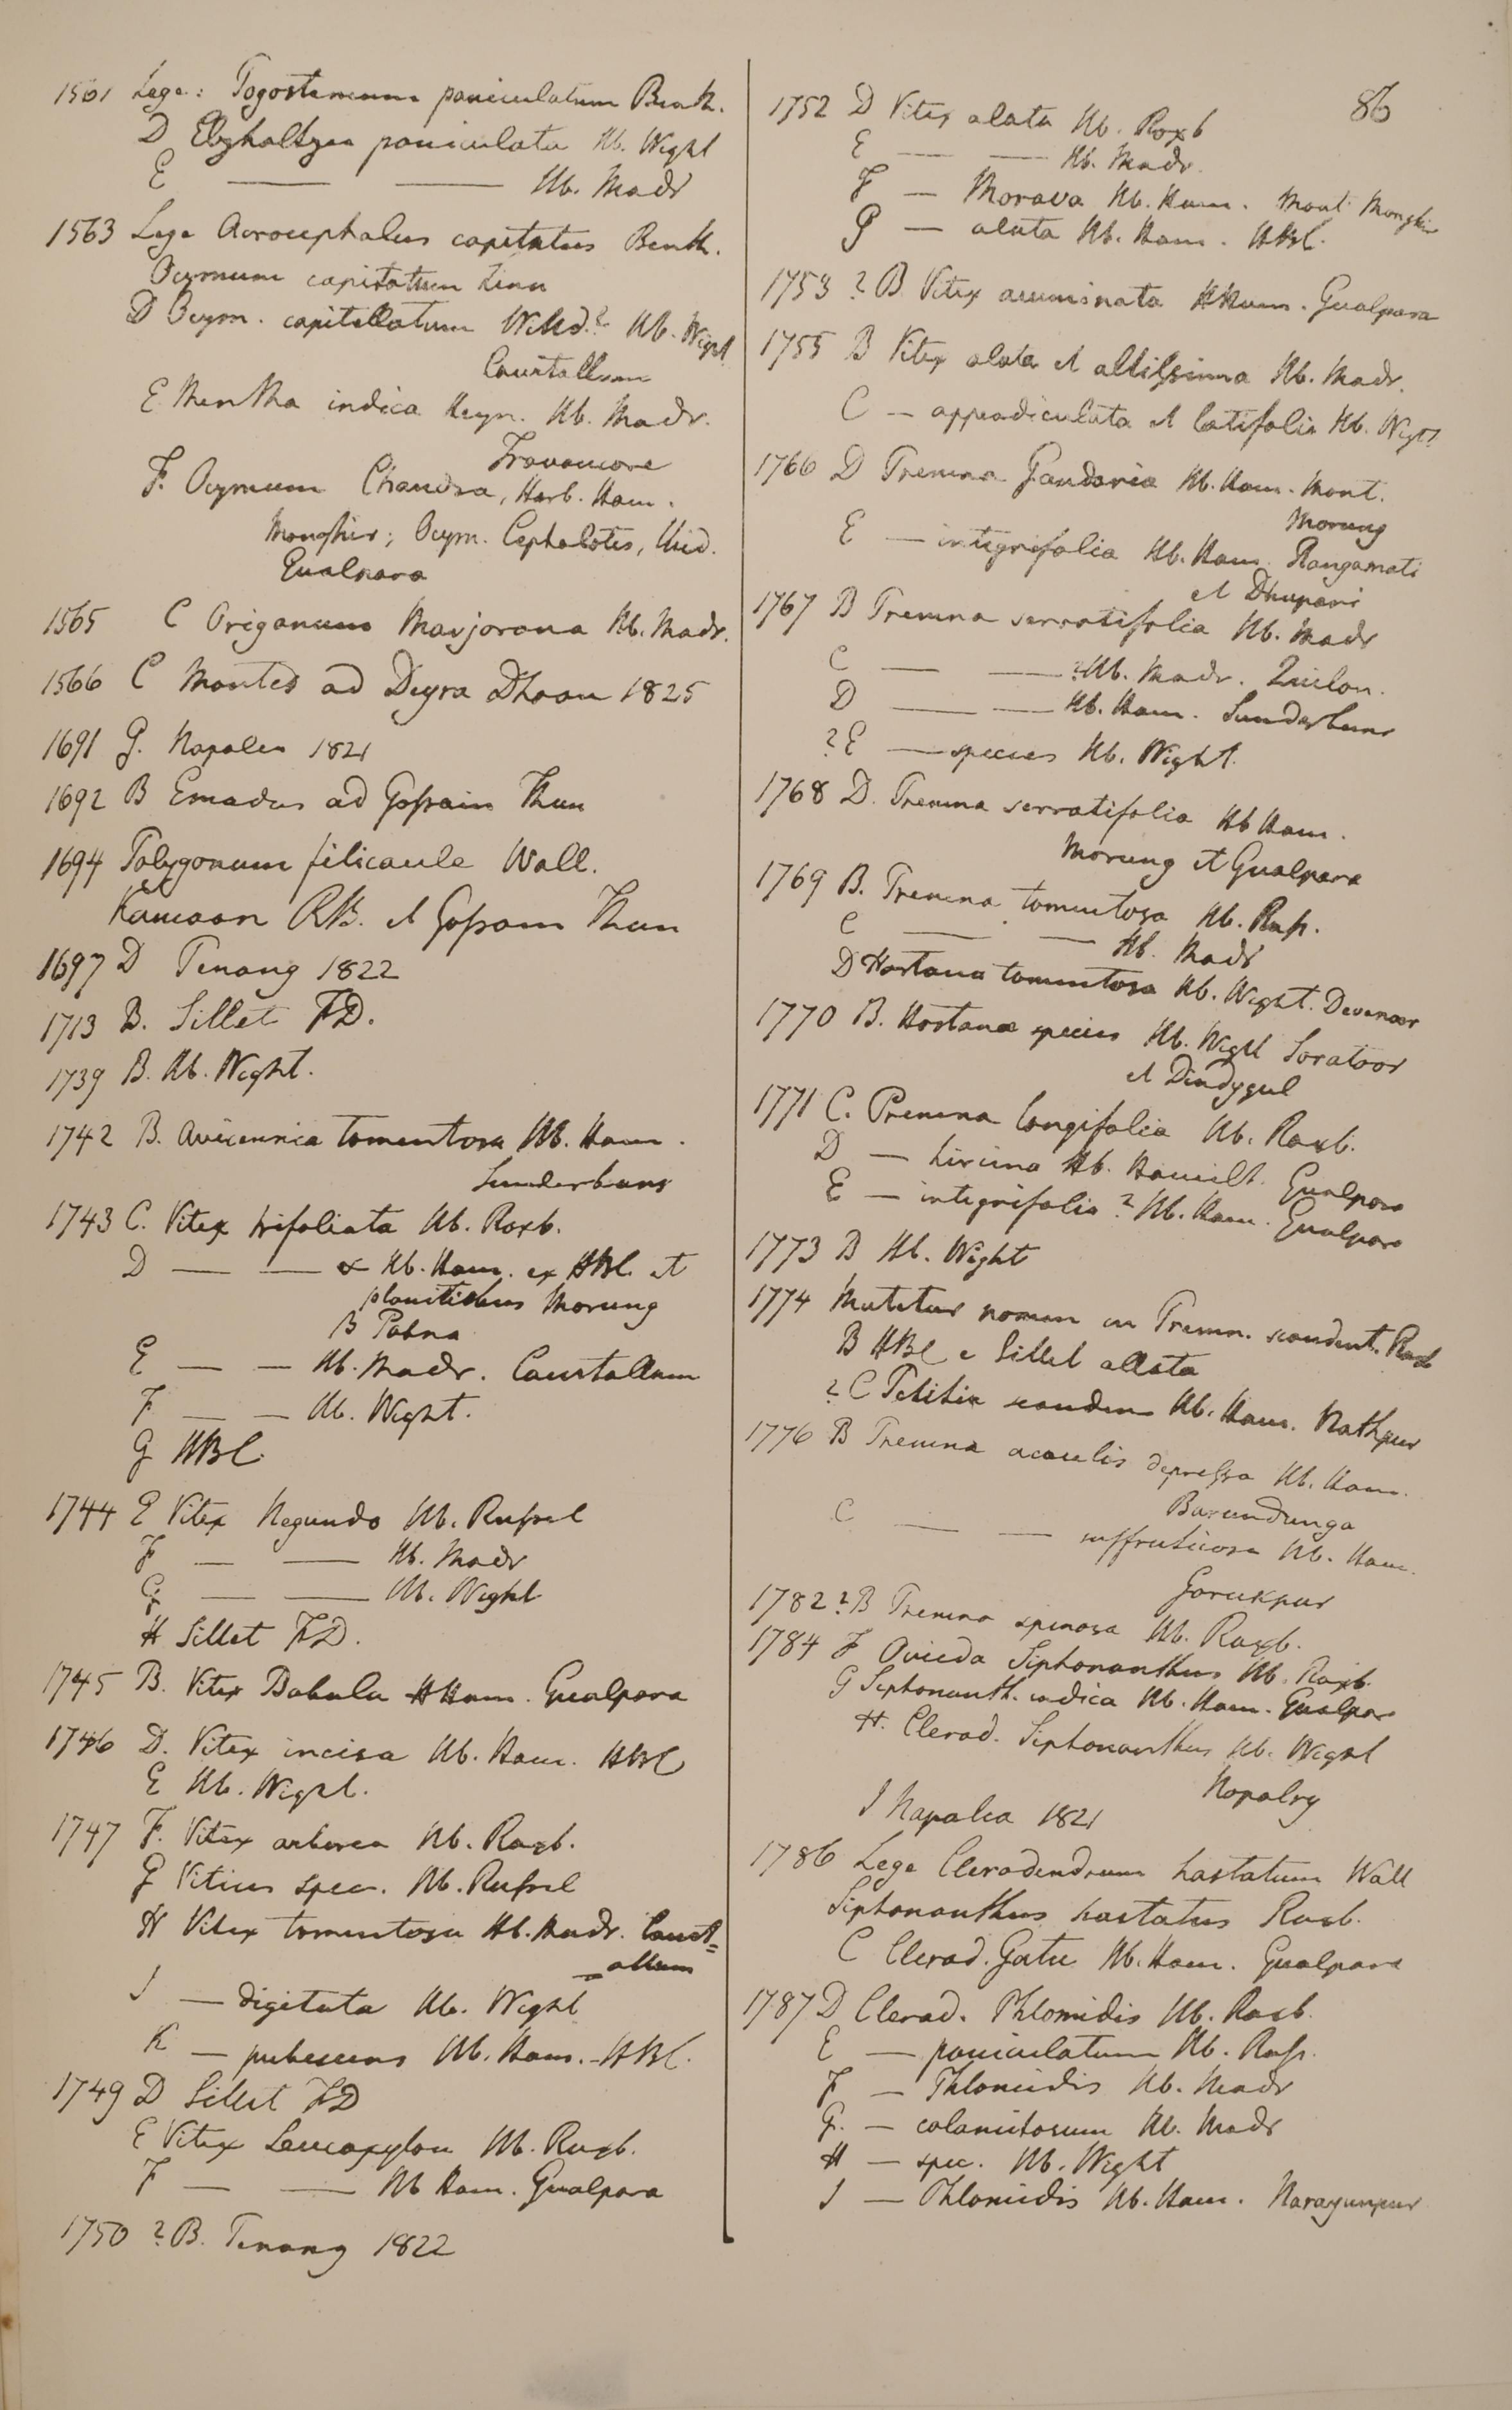 86
1561 Lege: Pogostemum paniculatum Benth.
D Elsholtzia paniculata Hb. Wight
E — — Hb. Madr
1563 Lege Acrocephalus capitatus Benth.
Ocymum capitatum Linn
D Ocym. capitellatum Willd.? Hb. Wight
Courtallum
E Mentha indica Heyn. Hb. Madr.
Travancore
F. Ocymum Chandra, Herb. Ham.
Monghir; Ocym. Cephalotes, Ibid.
Gualpara
1565 C Origanum Marjorana Hb. Madr.
1566 C Montes ad Deyra Dhoon 1825
1691 G. Napalia 1821
1692 B Emodus ad Gossain Than
1694 Polygonum filicaule Wall.
Kamaon RB. et Gossain Than
1697 D Penang 1822
1713 B. Sillet FD.
1739 B. Hb. Wight.
1742 B. Avicennia tomentosa Hb. Ham.
Sunderbuns
1743 C. Vitex trifoliata Hb. Roxb.
D — — α Hb. Ham. ex HBC. et
planitiebus Morung
β Patna
E — — Hb. Madr. Courtallum
F — — Hb. Wight.
G HBC.
1744 E Vitex Negundo Hb. Russel
F — — Hb. Madr
G — — Hb. Wight
H Sillet FD.
1745 B. Vitex Babula HHam. Gualpara
1746 D. Vitex incisa Hb. Ham. HBC
E Hb. Wight.
1747 F. Vitex arborea Hb. Roxb.
G Viticis spec. Hb. Russel
H Vitex tomentosa Hb. Madr. Court=
=allum
I — digitata Hb. Wight
K — pubescens Hb. Ham. HBC.
1749 D Sillet FD
E Vitex Leucoxylon Hb. Roxb.
F — — Hb Ham. Gualpara
1750 ? B. Penang 1822
1752 D Vitex alata Hb. Roxb
E — — Hb. Madr.
F — Morava Hb. Ham. Mont. Monghir
G — alata Hb. Ham. HBC.
1753 ? B. Vitex acuminata HHam. Gualpara
1755 B Vitex alata et altissima Hb. Madr.
C — appendiculata et latifolia Hb. Wight
1766 D Premna Gandaria Hb. Ham. Mont.
Morung
E — integrifolia Hb. Ham. Rangamati
et Dhupani
1767 B Premna serratifolia Hb. Madr
C — — ? Hb. Madr. Quilon.
D — — Hb. Ham. Sundarbuns
? E — species Hb. Wight.
1768 D. Premna serratifolia Hb Ham.
Morung et Gualpara
1769 B. Premna tomentosa Hb. Russ.
C — — Hb. Madr
D Hortana tomentosa Hb. Wight.
1770 B. Hortanae species Hb. Wight
et Dindygul
1771 C. Premna longifolia Hb. Roxb.
D — hircina Hb. Hamilt. Gualpara
E — integrifolia? Hb. Ham. Gualpara
1773 B Hb. Wight
1774 Mutetur nomen in Premn. scandent. Roxb
B HBC e Sillet allata
? C Petitia scandens Hb. Ham. Nathpur
1776 B Premna acaulis depressa Hb. Ham.
Barundunga
C — — suffruticosa Hb. Ham.
Gorukpur
1782 ? B Premna spinosa Hb. Roxb.
1784 F Ovieda Siphonanthus Hb. Roxb.
G Siphonanth. indica Hb. Ham. Gualpar
H. Clerod. Siphonanthus Hb. Wight
Nopalry
I Napalia 1821
1786 Lege Clerodendrum hastatum Wall
Siphonanthus hastatus Roxb.
C Clerod. Gatu Hb. Ham. Gualpara
1787 D Clerod. Phlomidis Hb. Roxb.
E — paniculatum Hb. Russ.
F — Phlomidis Hb. Madr
G. — calamitosum Hb. Madr
H — spec. Hb. Wight
I — Phlomidis Hb. Ham. Narayunpur